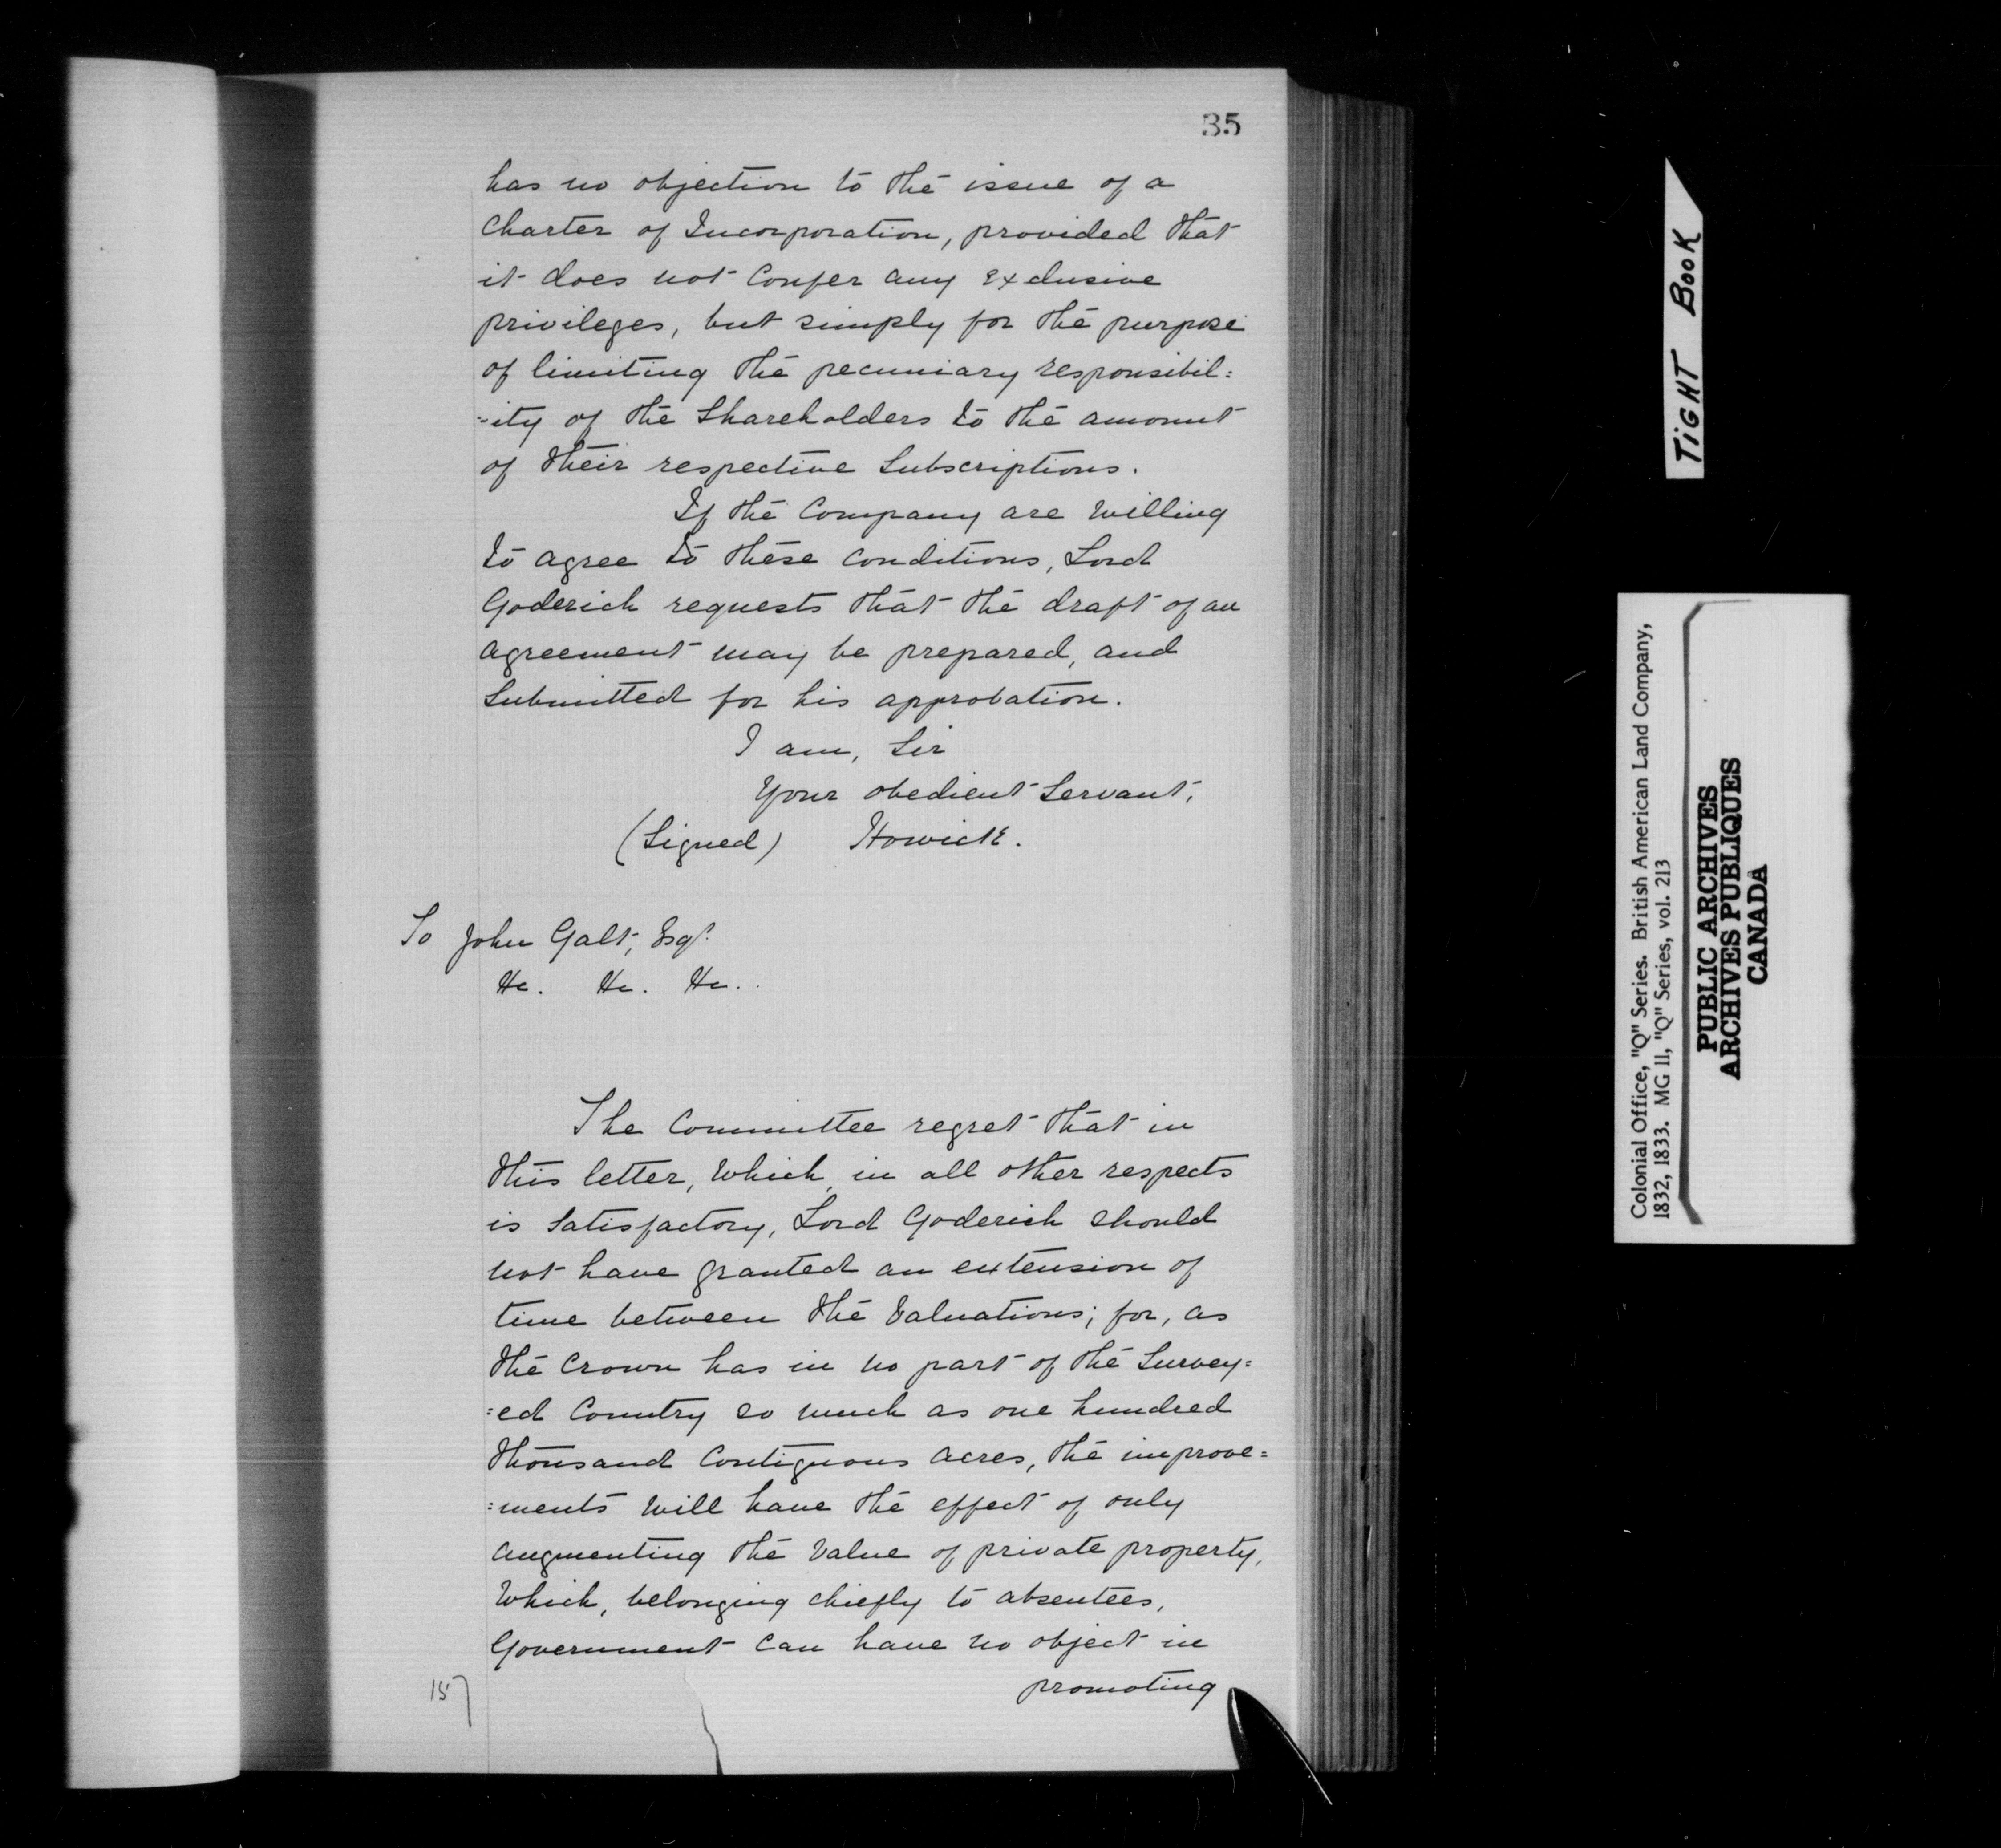 35
has no objection to the issue of a
Charter of Incorporation, provided that
it does not Confer any exclusive
privileges, but simply for the purpose
of limiting the pecuniary responsibil=
=ity of the Shareholders to the amount
of their respective Subscriptions.
If the Company are Willing
to agree to these Conditions, Lord
Goderich requests that the draft of an
Agreement may be prepared, and
Submitted for his approbation.
I am, Sir
Your obedient Servant,
(Signed) Howick.
To John Galt, Esqr.
&c. &c. &c.
The Committee regret that in
this letter, Which, in all other respects
is Satisfactory, Lord Goderich should
not have granted an extension of
time between the Valuations; for, as
the Crown has in no part of the Survey=
=ed Country so much as one hundred
thousand Contiguous Acres, the improve=
=ments Will have the effect of only
augmenting the Value of private property,
Which, belonging chiefly to absentees,
Government Can have no object in
promoting
157
TIGHT BOOK
Colonial Office, "Q" Series. British American Land Company,
1832, 1833. MG 11, "Q" Series, vol. 213
PUBLIC ARCHIVES
ARCHIVES PUBLIQUES
CANADA